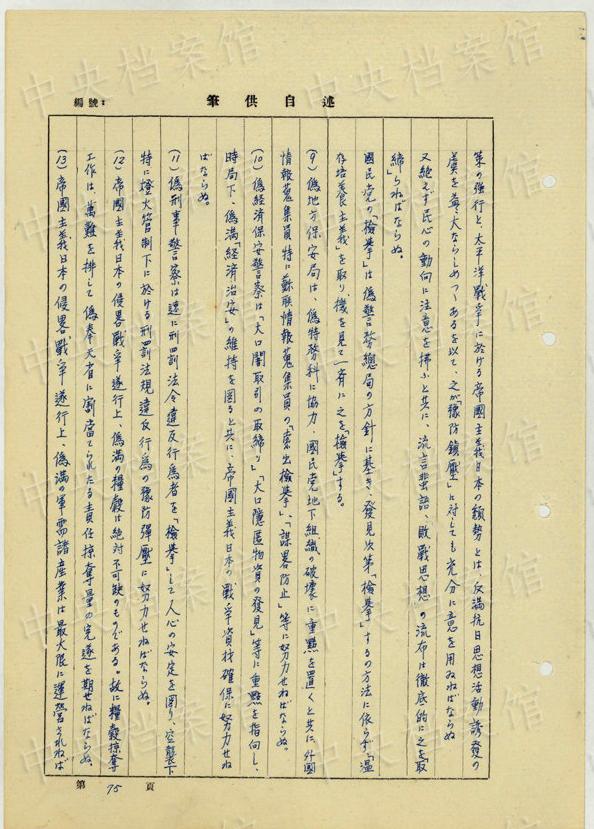 編號：
筆供自述
策の強行と、太平洋戰爭に於ける帝國主義日本の頽勢とは、反滿抗日思想活動誘發の
虞を甚大ならしめつゝあるを以て、之が「豫防鎮壓」に対しても充分に意を用ゐねばならぬ
又絶えず民心の動向に注意を拂ふと共に、流言蜚語、敗戰思想の流布は徹底的に之を取
締」らねばならぬ。
國民党の「檢挙」は偽警務總局の方針に基き、發見次第「檢挙」するの方法に依らず「溫
存培養主義」を取り、機を見て一斉に之を「檢挙」する。
(9) 偽地方保安局は、偽特務科に協力、國民党地下組織の破壞に重點を置くと共に、外國
情報蒐集員特に蘇联情報蒐集員の「索出檢挙」、「謀畧防止」等に努力せねばならぬ。
(10) 偽経済保安警察は「大口闇取引の取締り」「大口隱匿物資の發見」等に重點を指向し、
時局下、偽滿「経済治安」の維持を圖ると共に、帝國主義日本の戰爭資材確保に努力せね
ばならぬ。
(11) 偽刑事警察は速に刑罰法令違反行為者を「檢挙」して人心の安定を圖り、空襲下
特に燈火管制下に於ける刑罰法規違反行為の豫防彈壓に努力せねばならぬ。
(12) 帝國主義日本の侵畧戰爭遂行上、偽滿の糧穀は絶対不可缺のものである。故に糧穀掠奪
工作は、萬難を排して偽奉天省に割當てられたる責任掠奪量の完遂を期せねばならぬ。
(13) 帝國主義日本の侵畧戰爭遂行上、偽滿の軍需諸産業は最大限に運営されねば
第 75 頁
中央档案馆